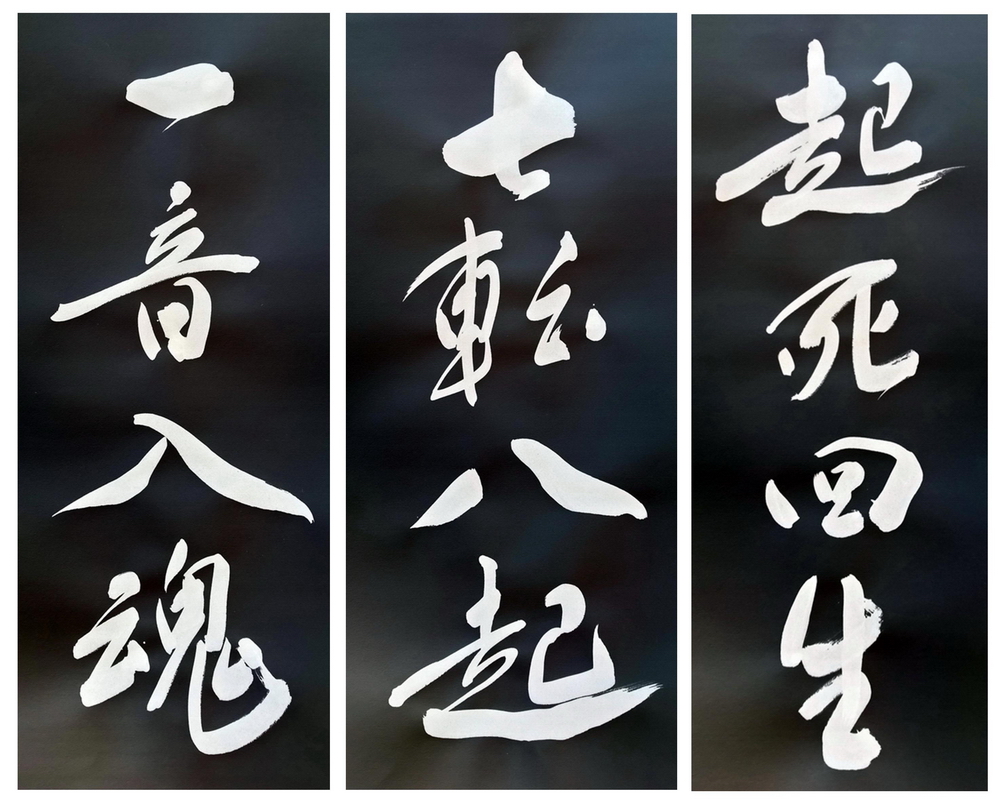 起死回生
七転八起
一音入魂